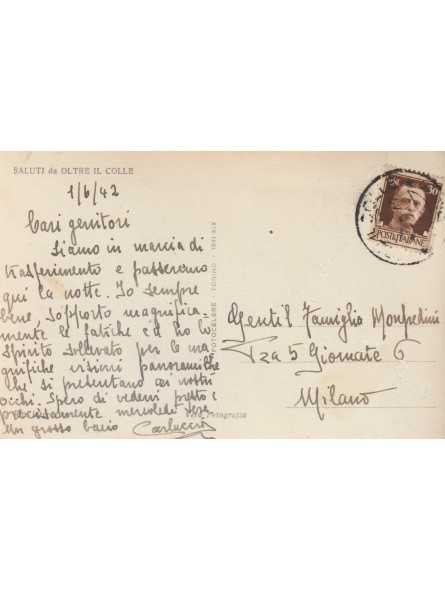 SALUTI da OLTRE IL COLLE
1/6/42
Cari genitori
Siamo in marcia di
trasferimento e passeremo
qui la notte. Io sempre
bene, sopporto magnifica-
mente le fatiche ed ho lo
spirito sollevato per le ma-
gnifiche visioni panoramiche
che si presentano ai nostri
occhi. Spero di vedervi presto e
precisamente mercoledì sera
Un grosso bacio Carluccio
Vera Fotografia
FOTOCELERE - TORINO - 1941-XIX
30
POSTE ITALIANE
Gentil Famiglia
Pza 5 Giornate 6
Milano